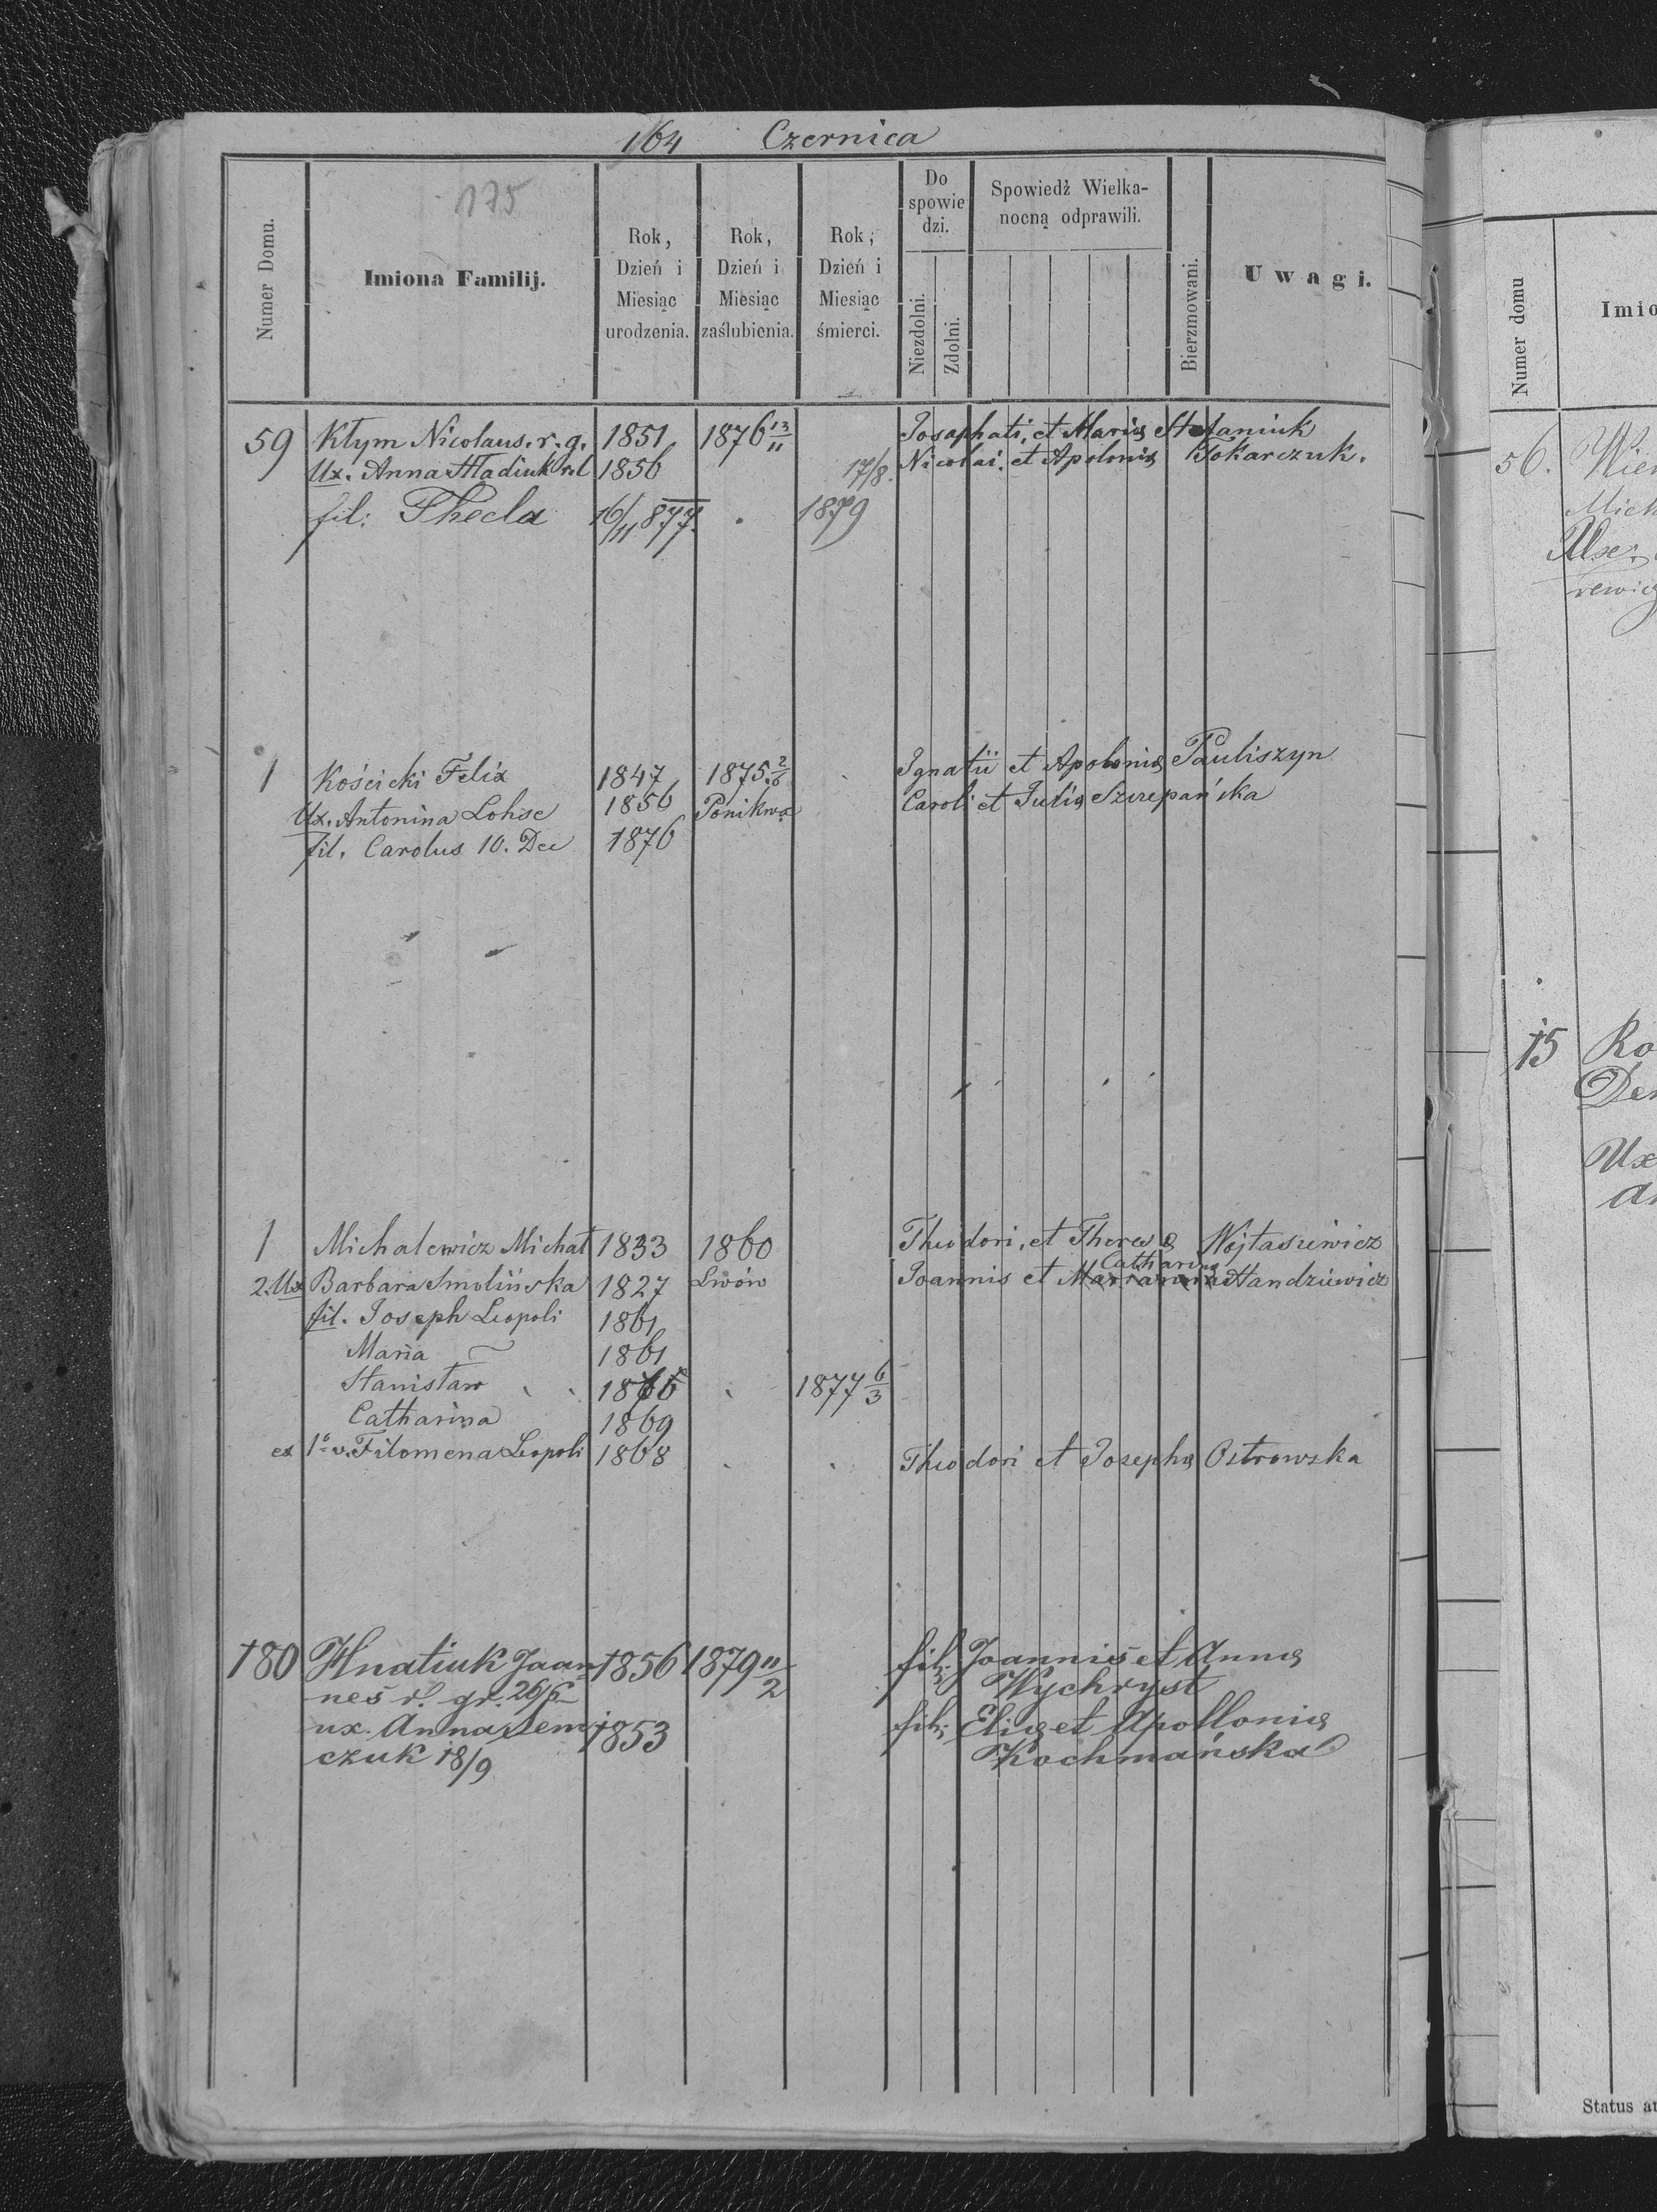 164 Czernica
175
Numer Domu.
Imiona Familij.
Rok, Dzień i Miesiąc urodzenia.
Rok, Dzień i Miesiąc zaślubienia.
Rok, Dzień i Miesiąc śmierci.
Do spowie dzi.
Niezdolni.
Zdolni.
Spowiedź Wielka-
nocną odprawili.
Bierzmowani.
Uwagi.
59 Kłym Nicolaus. r. g. 1851 1876 13/11 Josaphati, et Mariæ Stefaniuk
Ux. Anna Hładiuk r.l 1856 17/8. Nicolai. et Apoloniæ Tokarczuk.
fil: Thecla 16/11 877 1879
1 Kościcki Felix 1847 1875. 2/6 Ignatii et Apoloniæ Pauliszyn
Ux. Antonina Lohse 1856 Ponikwa Caroli et Juliæ Szczepańska
fil. Carolus 10. Dec 1876
1 Michalewicz Michał 1833 1860 Theodori, et Theresiæ Wojtasiewicz
Catharina
2. Ux Barbara Smolińska 1827 Lwów Joannis et Marianna Handziewicz
fil. Joseph Leopoli 1861
Maria 1861
Stanisław 1876 1877 6/3
Catharina 1869
ex 1º v. Filomena Leopoli 1868 Theodori et Josephæ Ostrowska
180 Hnatiuk Joan- 1856 1879 11/2 fil; Joannis et Annæ
nes r. gr. 26/6 Wychryst
ux. Anna Dem- 1853 fil; Eliæ et Apolloniæ
czuk 18/9 Kochmańska
Numer domu
Imio
56. Wier
Mich
Ux.
rewicz
15 Ro
Der
Ux
An
Status an